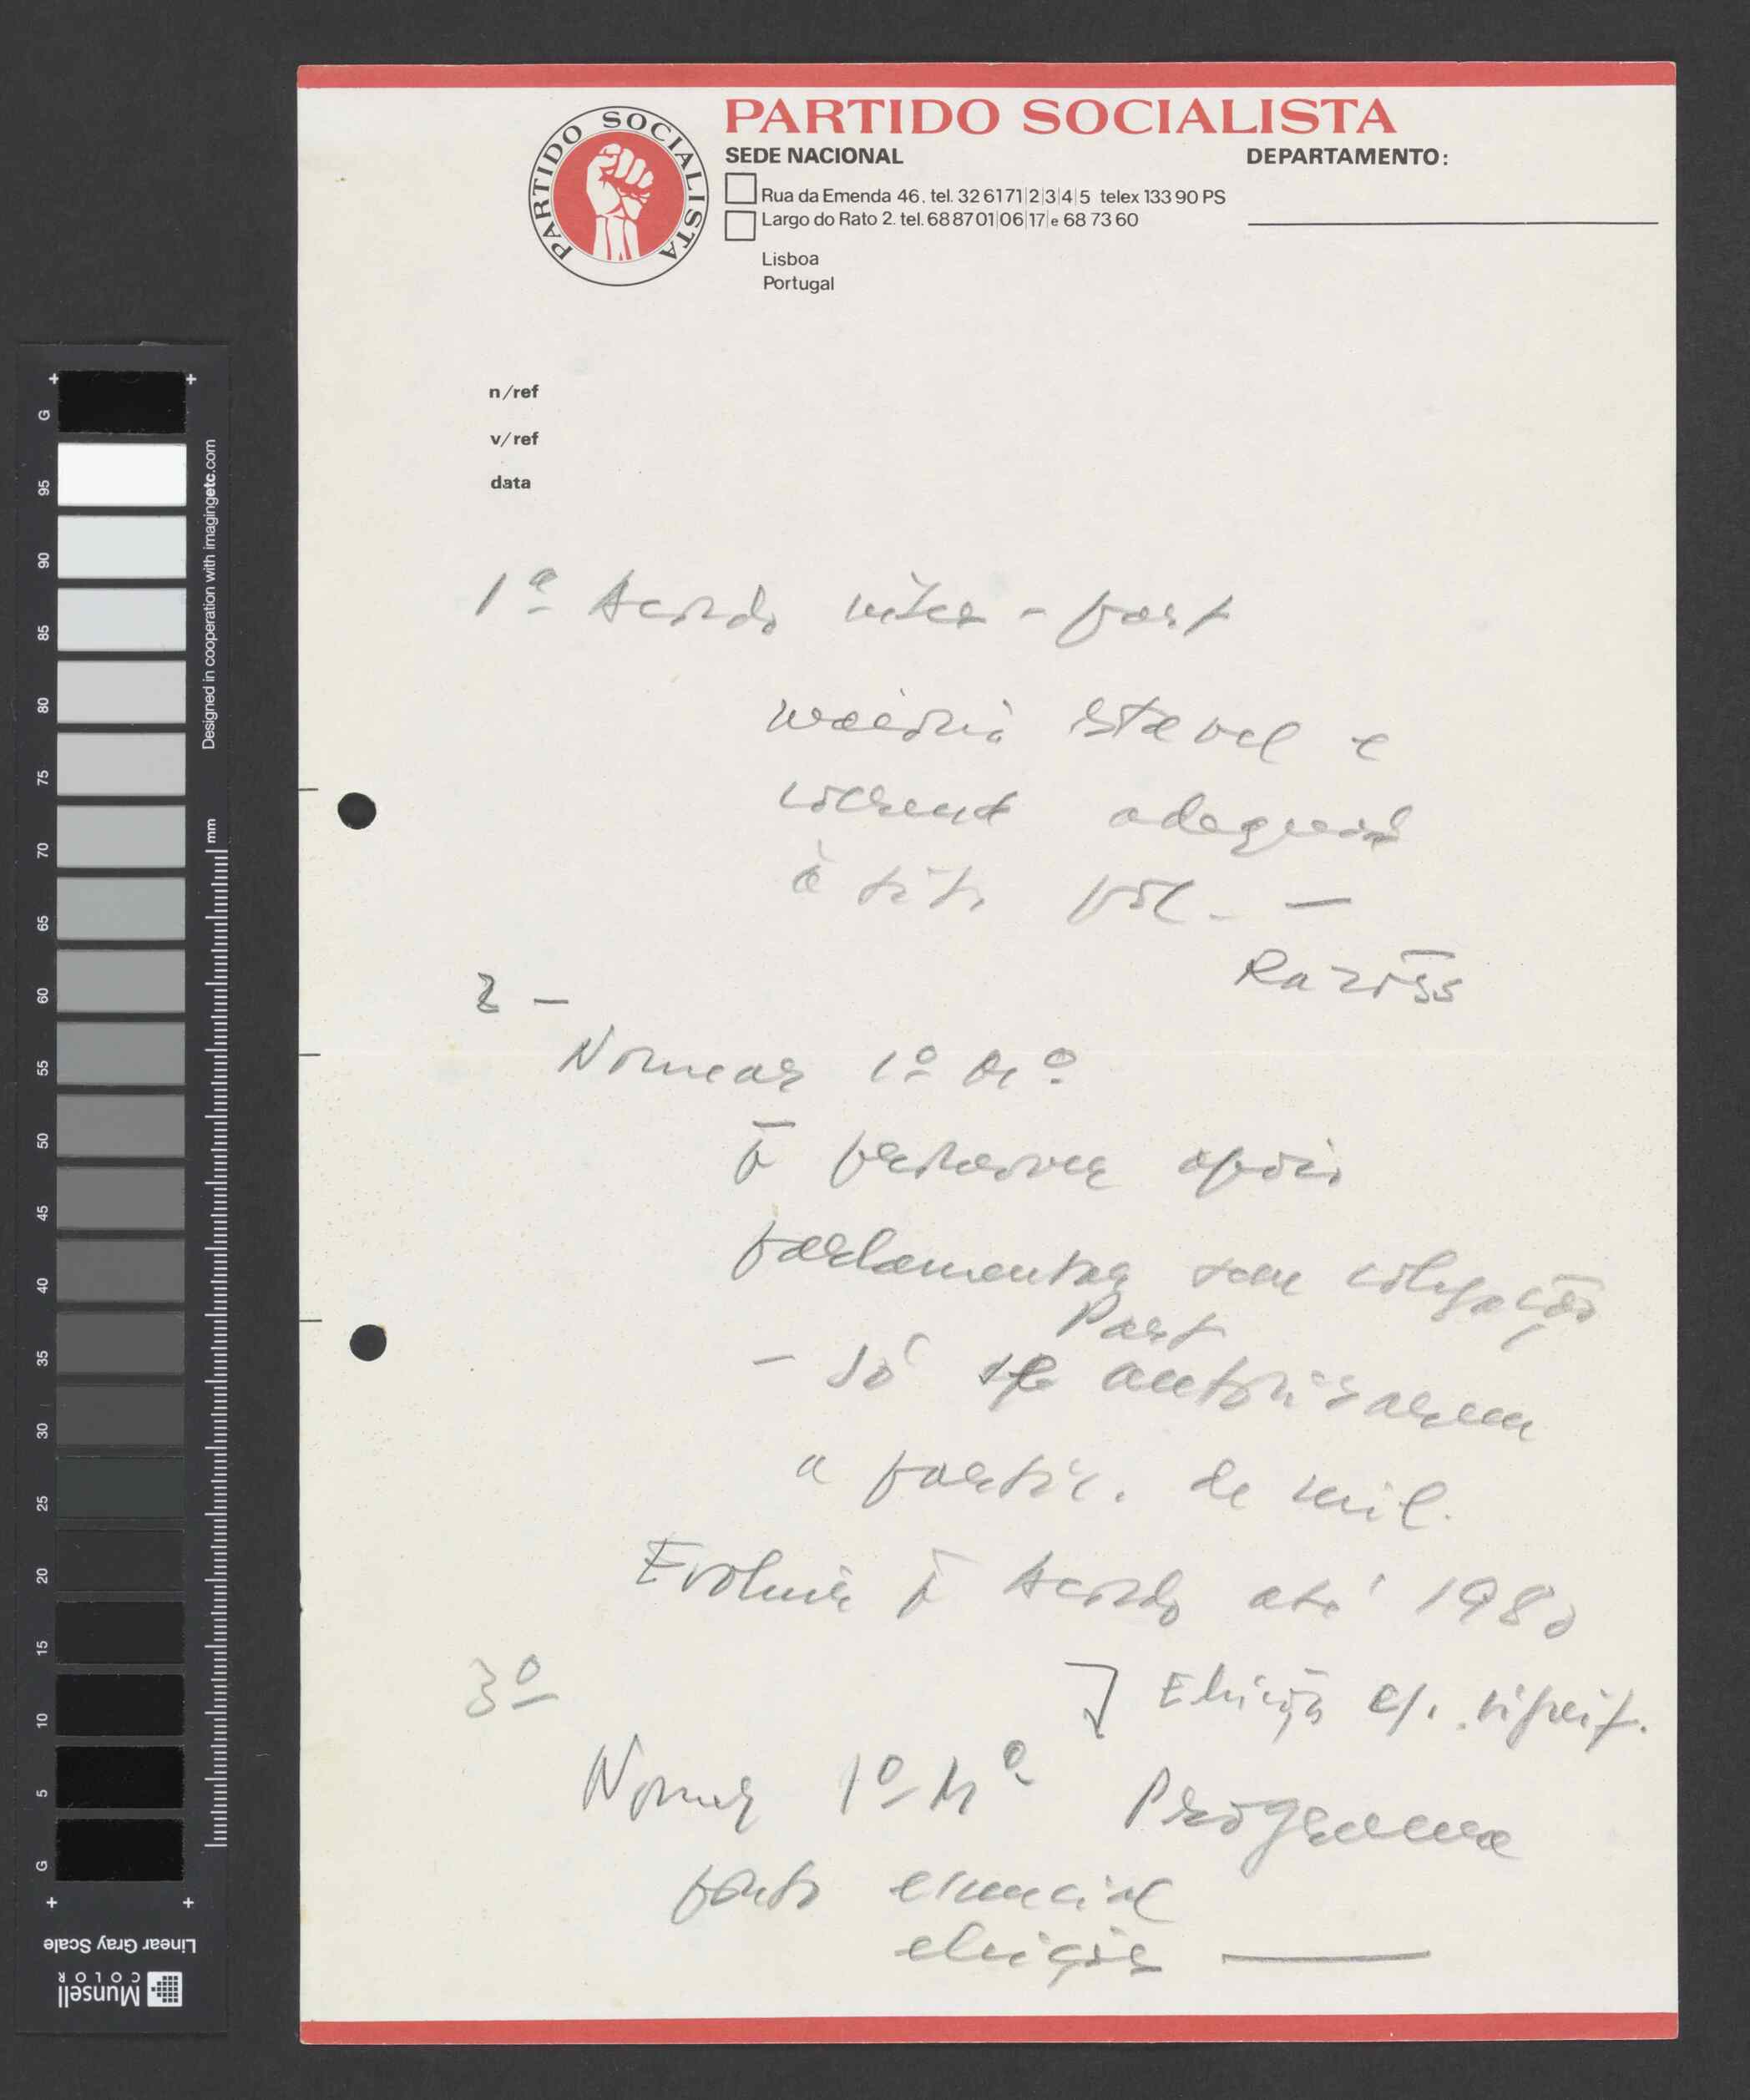 PARTIDO SOCIALISTA
PARTIDO SOCIALISTA
SEDE NACIONAL
DEPARTAMENTO:
Rua da Emenda 46. tel. 32 6171|2|3|4|5 telex 133 90 PS
Largo do Rato 2. tel. 68 87 01|06|17|e 68 73 60
Lisboa
Portugal
n/ref
v/ref
data
1º Acordo inter-part
maioria estavel e
coerent adequad
à sit. pol. —
Razões
2 —
Nomear 1º Mº
apoio
parlamentar sem coligação
Part
- só se autorizarem
a partic. de mil.
Evoluir Acordo até 1980
3º
Eleição
Nomear 1º Mº Programa
ponto essencial
eleições —
G
95
90
85
80
75
70
65
60
55
50
45
40
35
30
25
20
15
10
5
G
Designed in cooperation with imagingetc.com
mm
Linear Gray Scale
Munsell
COLOR